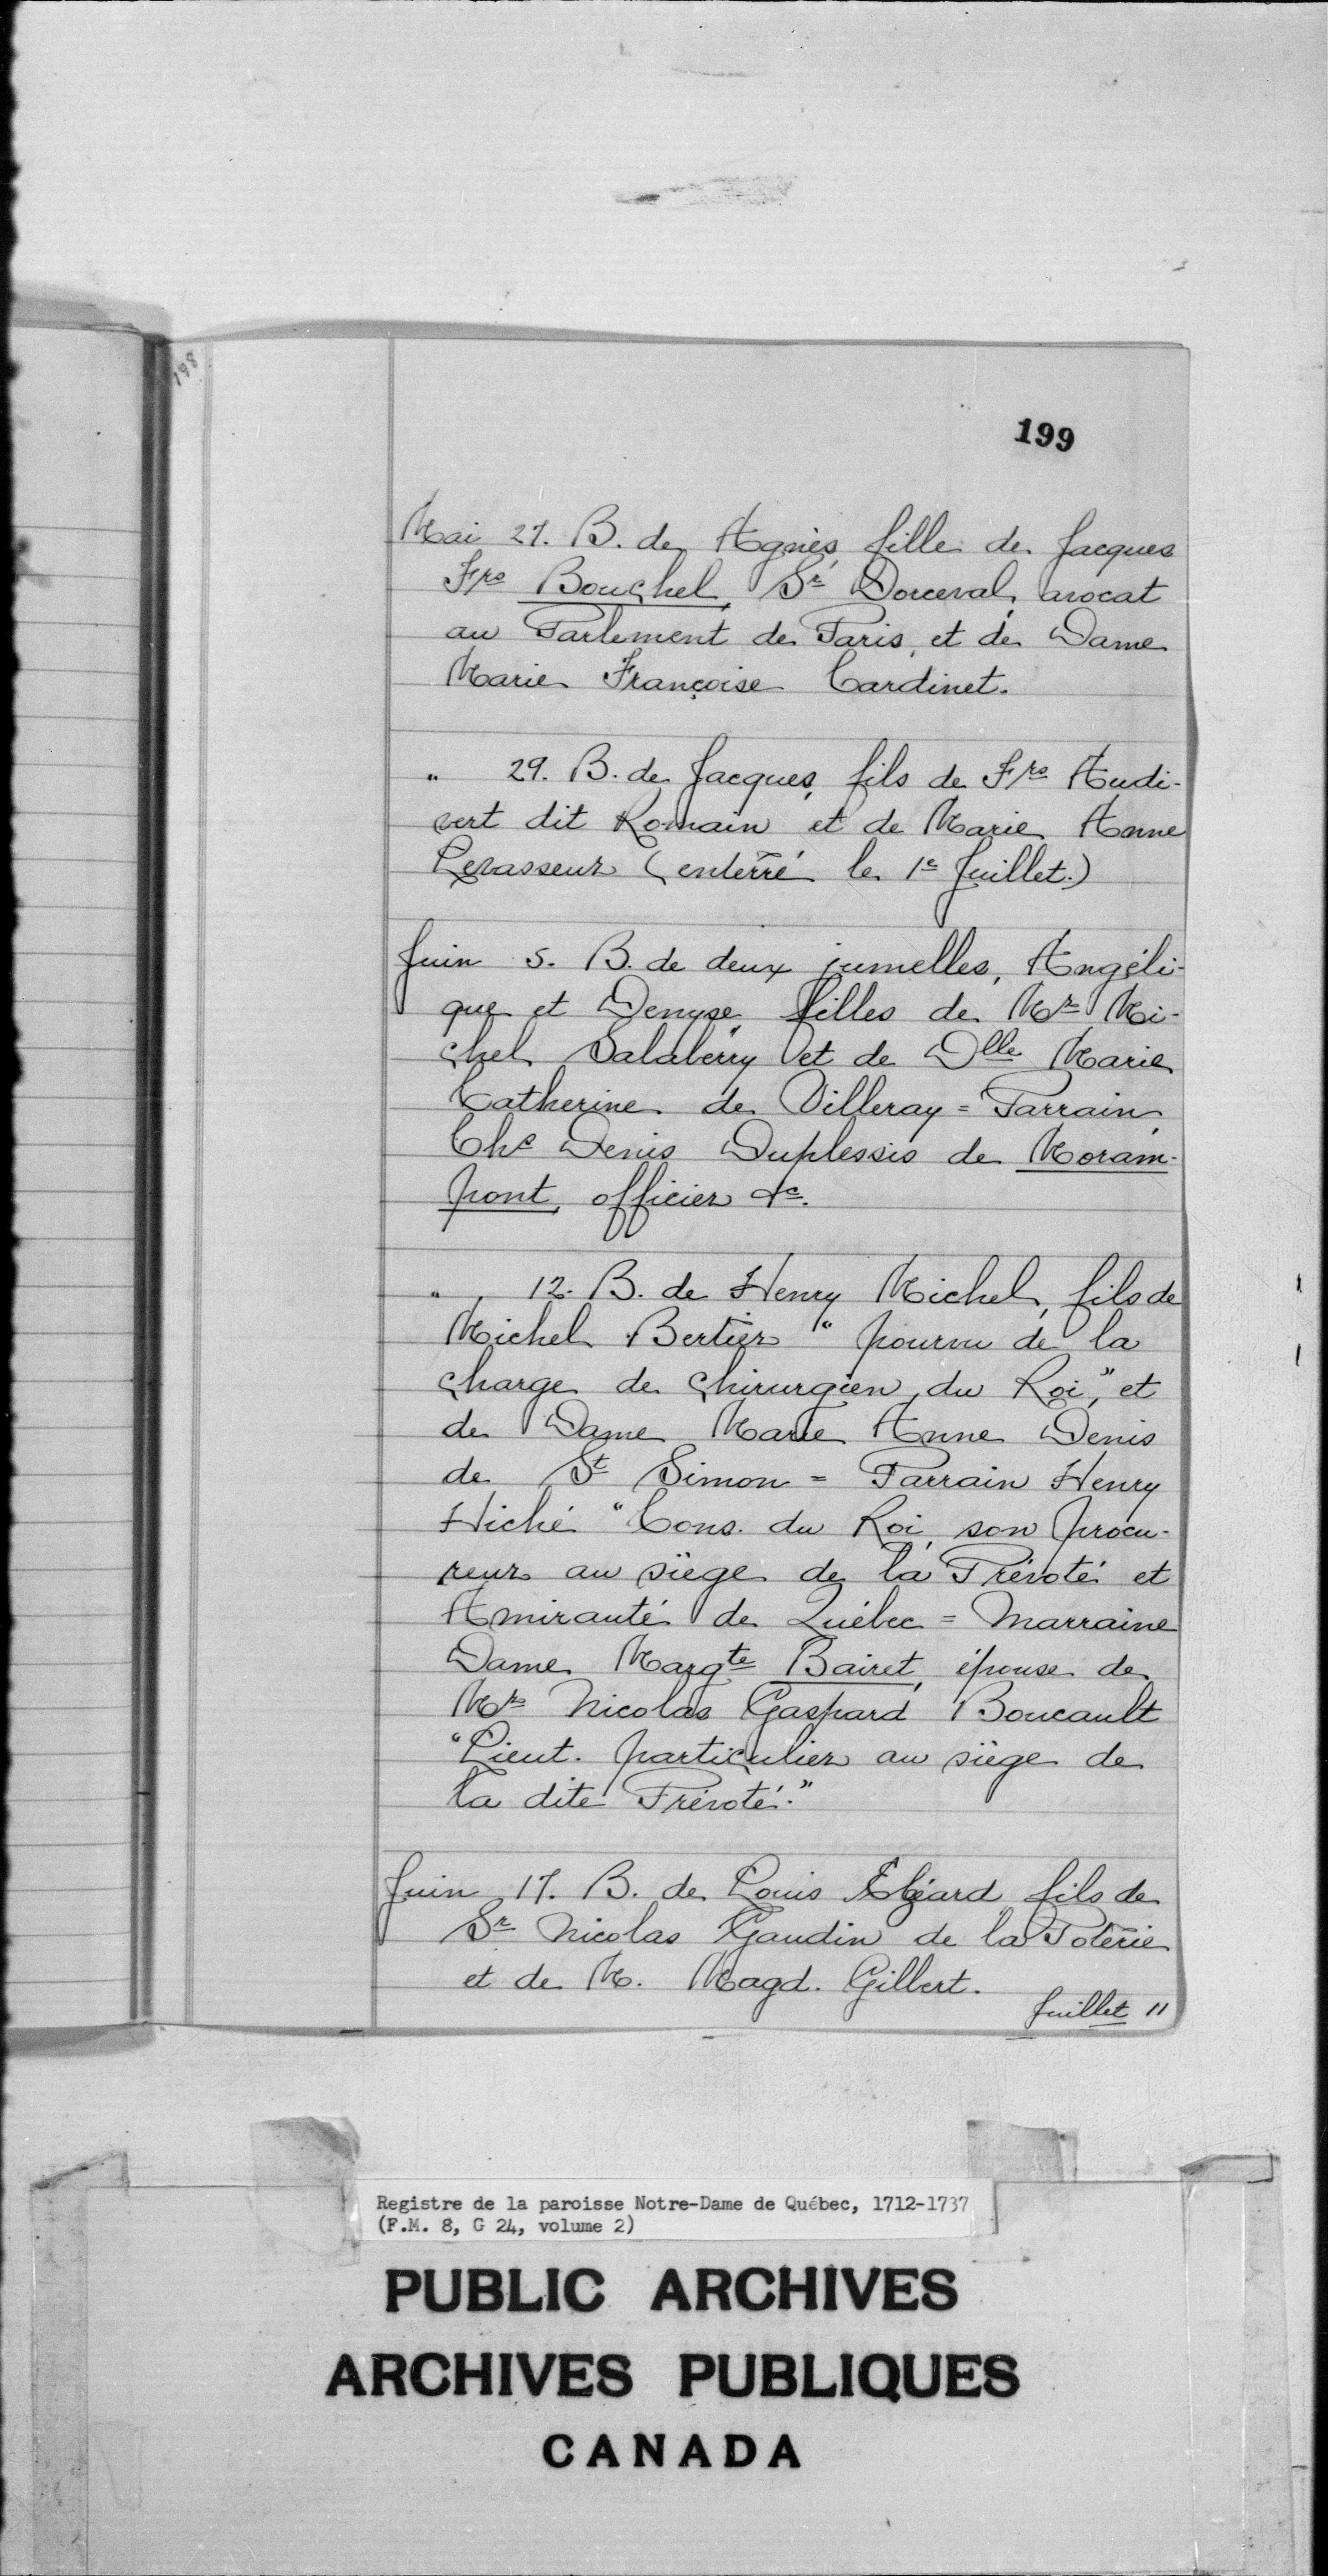 198
199
Mai 27. B. de Agnès, fille de Jacques
Frs Bouchel, Sr Dorceval, avocat
au Parlement de Paris, et de Dame
Marie Françoise Cardinet.
" 29. B. de Jacques, fils de Frs Audi-
vert dit Romain et de Marie Anne
Levasseur (enterré le 1e Juillet.)
Juin 5. B. de deux jumelles, Angéli-
que et Denyse, filles de Mr Mi-
chel Salaberry et de Dlle Marie
Catherine de Villeray = Parrain,
Chs Denis Duplessis de Moram-
pont, officier &c.
" 12. B. de Henry Michel, fils de
Michel Bertier "pourvu de la
charge de chirurgien du Roi", et
de Dame Marie Anne Denis
de St Simon = Parrain Henry
Hiché "Cons. du Roi, son procu-
reur au siège de la Prévoté et
Amirauté de Québec = Marraine
Dame Margte Bairet, épouse de
Mr Nicolas Gaspard Boucault
"Lieut. particulier au siège de
la dite Prévoté."
Juin 17. B. de Louis Elzéard fils de
Sr Nicolas Gaudin de la Poterie
et de M. Magd. Gilbert.
Juillet 11
Registre de la paroisse Notre-Dame de Québec, 1712-1737
(F.M. 8, G 24, volume 2)
PUBLIC ARCHIVES
ARCHIVES PUBLIQUES
CANADA